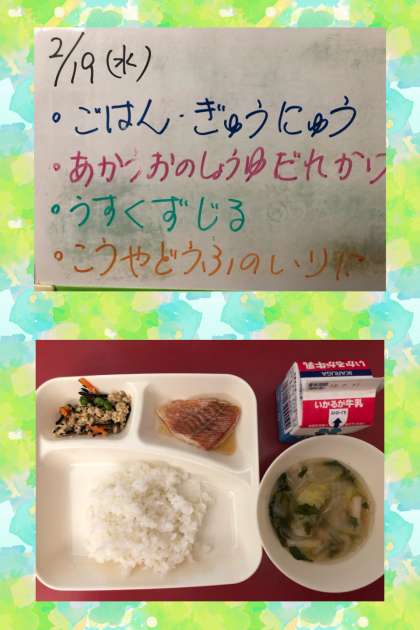 2/19 (水)
・ごはん・ぎゅうにゅう
・あかうおのしょうゆだれかけ
・うすくずじる
・こうやどうふのいりに
IKARUGA
いかるが牛乳
いかるが牛乳